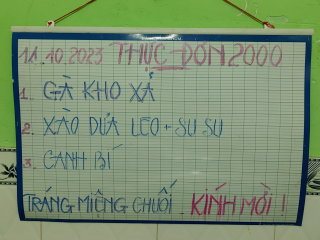 11.10.2023 THỰC ĐƠN 2000
1. GÀ KHO XẢ
2. XÀO DƯA LEO + SU SU
3. CANH BÍ
TRÁNG MIỆNG CHUỐI - KÍNH MỜI!